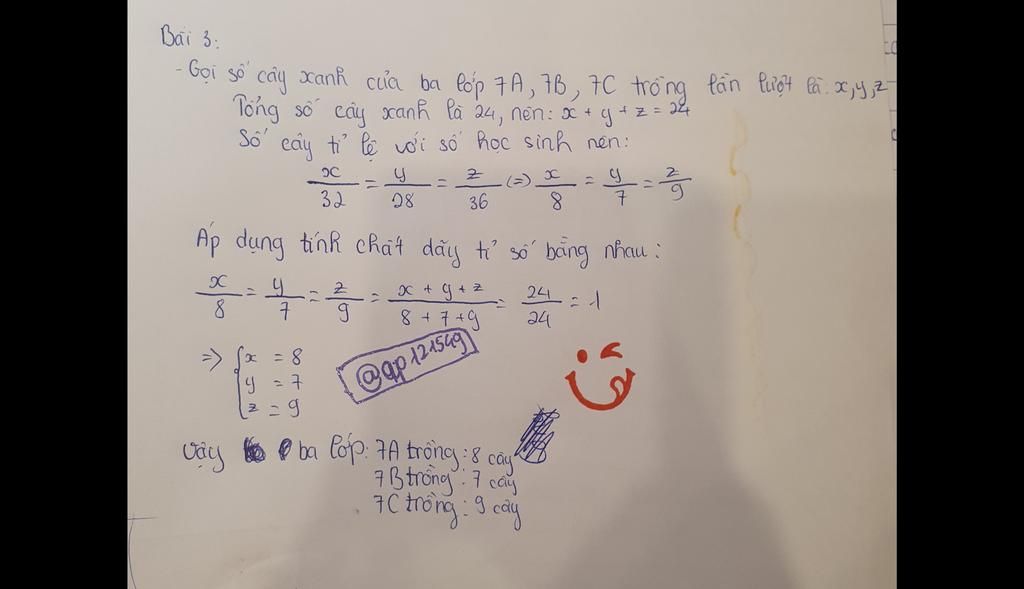 Bài 3:
- Gọi số cây xanh của ba lớp 7A, 7B, 7C trồng lần lượt là: x,y,z
Tổng số cây xanh là 24, nên: x + y + z = 24
Số cây tỉ lệ với số học sinh nên:
x/32 = y/28 = z/36 (=) x/8 = y/7 = z/9
Áp dụng tính chất dãy tỉ số bằng nhau:
x/8 = y/7 = z/9 = x + y + z / 8 + 7 + 9 = 24/24 = 1
=> { x = 8
y = 7
z = 9
@qp121549
Vậy ba lớp: 7A trồng: 8 cây
7B trồng: 7 cây
7C trồng: 9 cây